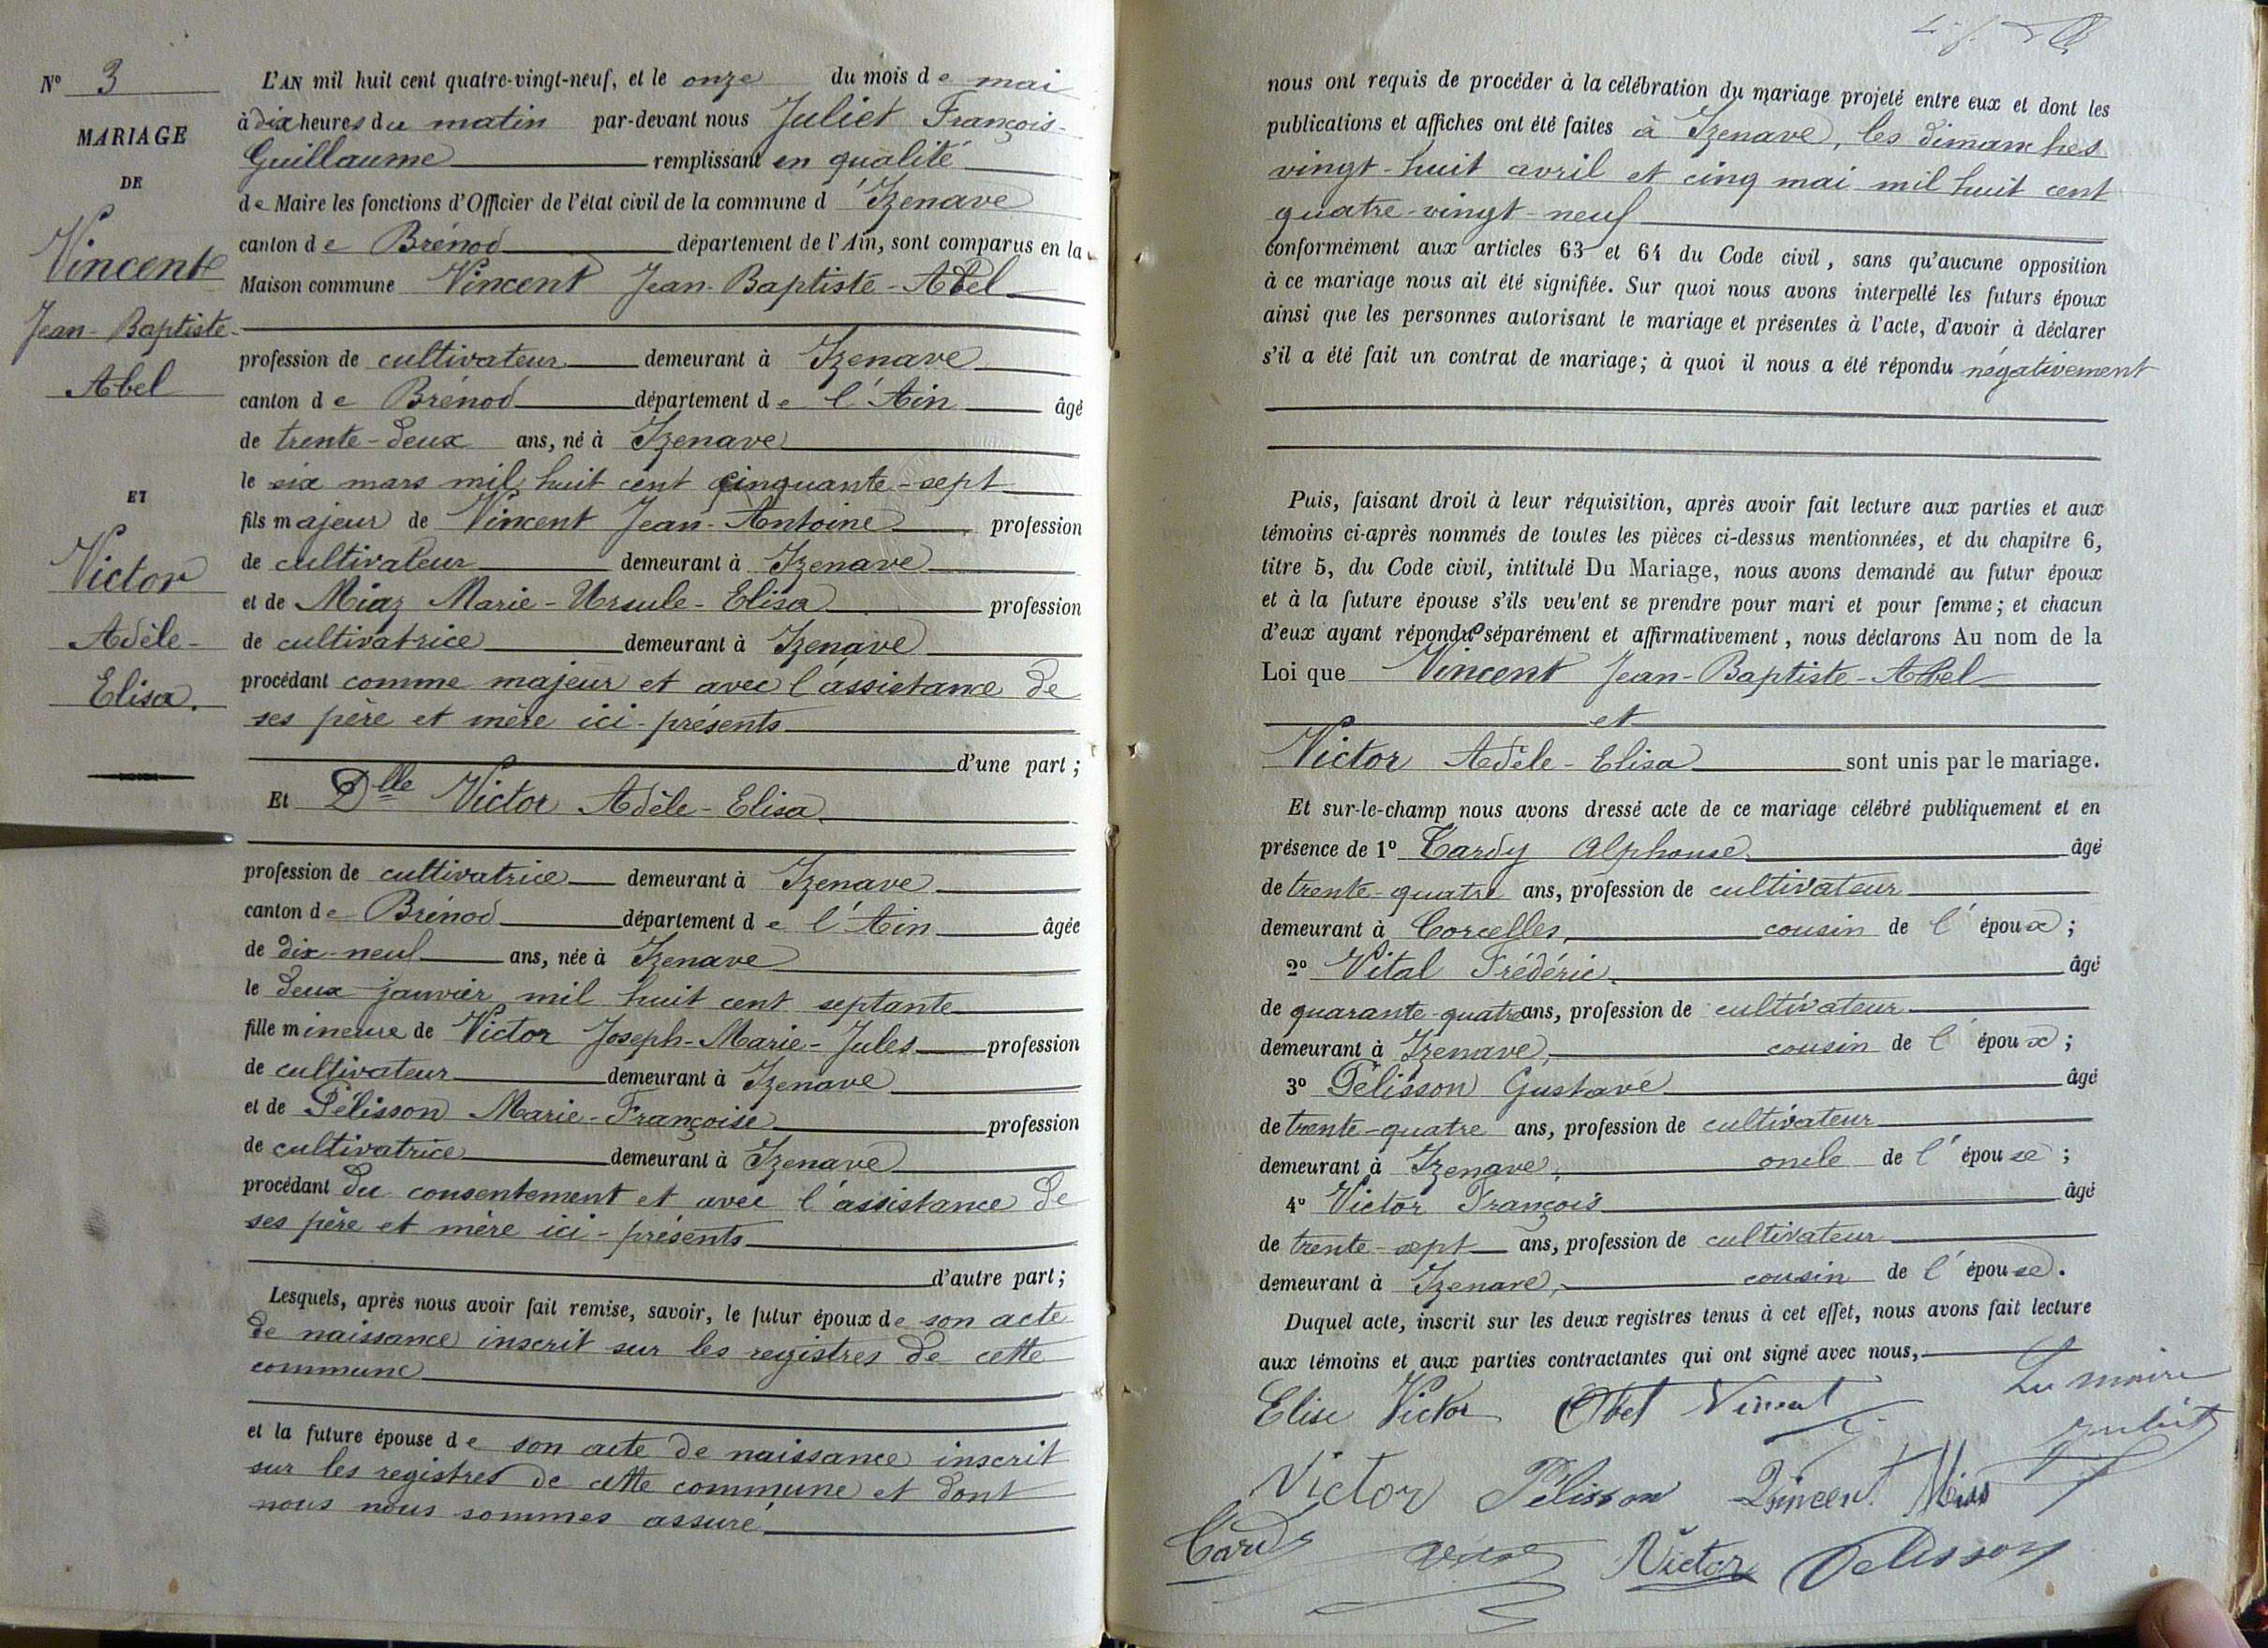 N° 3
MARIAGE
DE
Vincent
Jean-Baptiste-
Abel
ET
Victor
Adèle-
Elisa.
L'AN mil huit cent quatre-vingt-neuf, et le onze du mois de mai
à dix heures du matin par-devant nous Juliet François-
Guillaume remplissant en qualité
de Maire les fonctions d'Officier de l'état civil de la commune d'Izenave
canton de Brénod département de l'Ain, sont comparus en la
Maison commune Vincent Jean-Baptiste-Abel
profession de cultivateur demeurant à Izenave
canton de Brénod département de l'Ain âgé
de trente-deux ans, né à Izenave
le six mars mil huit cent cinquante-sept
fils majeur de Vincent Jean-Antoine profession
de cultivateur demeurant à Izenave
et de Miaz Marie-Ursule-Elisa profession
de cultivatrice demeurant à Izenave
procédant comme majeur et avec l'assistance de
ses père et mère ici-présents
d'une part;
Et Dlle Victor Adèle-Elisa
profession de cultivatrice demeurant à Izenave
canton de Brénod département de l'Ain âgée
de dix-neuf ans, née à Izenave
le deux janvier mil huit cent septante
fille mineure de Victor Joseph-Marie-Jules profession
de cultivateur demeurant à Izenave
et de Pélisson Marie-Françoise profession
de cultivatrice demeurant à Izenave
procédant du consentement et avec l'assistance de
ses père et mère ici-présents
d'autre part;
Lesquels, après nous avoir fait remise, savoir, le futur époux de son acte
de naissance inscrit sur les registres de cette
commune
et la future épouse de son acte de naissance inscrit
sur les registres de cette commune et dont
nous nous sommes assuré
nous ont requis de procéder à la célébration du mariage projeté entre eux et dont les
publications et affiches ont été faites à Izenave, les dimanches
vingt-huit avril et cinq mai mil huit cent
quatre-vingt-neuf
conformément aux articles 63 et 64 du Code civil, sans qu'aucune opposition
à ce mariage nous ait été signifiée. Sur quoi nous avons interpellé les futurs époux
ainsi que les personnes autorisant le mariage et présentes à l'acte, d'avoir à déclarer
s'il a été fait un contrat de mariage; à quoi il nous a été répondu négativement
Puis, faisant droit à leur réquisition, après avoir fait lecture aux parties et aux
témoins ci-après nommés de toutes les pièces ci-dessus mentionnées, et du chapitre 6,
titre 5, du Code civil, intitulé Du Mariage, nous avons demandé au futur époux
et à la future épouse s'ils veu'ent se prendre pour mari et pour femme; et chacun
d'eux ayant répondu séparément et affirmativement, nous déclarons Au nom de la
Loi que Vincent Jean-Baptiste-Abel
et
Victor Adèle-Elisa sont unis par le mariage.
Et sur-le-champ nous avons dressé acte de ce mariage célébré publiquement et en
présence de 1° Tardy Alphonse âgé
de trente-quatre ans, profession de cultivateur
demeurant à Corcelles, cousin de l'époux;
2° Vital Frédéric âgé
de quarante-quatre ans, profession de cultivateur
demeurant à Izenave, cousin de l'époux;
3° Pélisson Gustave âgé
de trente-quatre ans, profession de cultivateur
demeurant à Izenave, oncle de l'épouse;
4° Victor François âgé
de trente-sept ans, profession de cultivateur
demeurant à Izenave, cousin de l'épouse.
Duquel acte, inscrit sur les deux registres tenus à cet effet, nous avons fait lecture
aux témoins et aux parties contractantes qui ont signé avec nous,
Elise Victor Abel Vincent Le maire
Juliet
Victor Pélisson Vincent Miaz
Tardy Vital Victor Pelisson